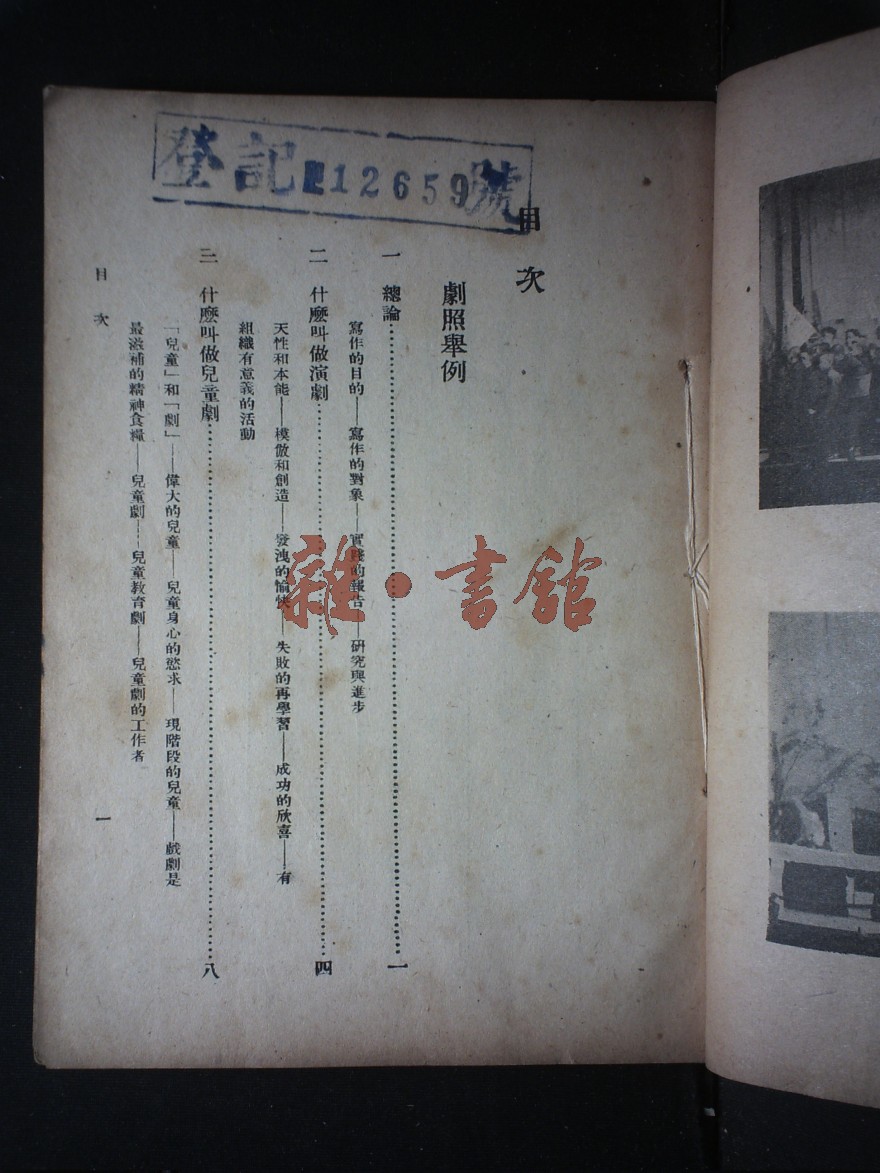 登記 12659 號
目次
劇照舉例
一 總論……一
寫作的目的——寫作的對象——實踐的報告——研究與進步
二 什麼叫做演劇……四
天性和本能——模倣和創造——發洩的愉快——失敗的再學習——成功的欣喜——有
組織有意義的活動
三 什麼叫做兒童劇……八
「兒童」和「劇」——偉大的兒童——兒童身心的慾求——現階段的兒童——戲劇是
最滋補的精神食糧——兒童劇——兒童教育劇——兒童劇的工作者
目次
一
雜·書館